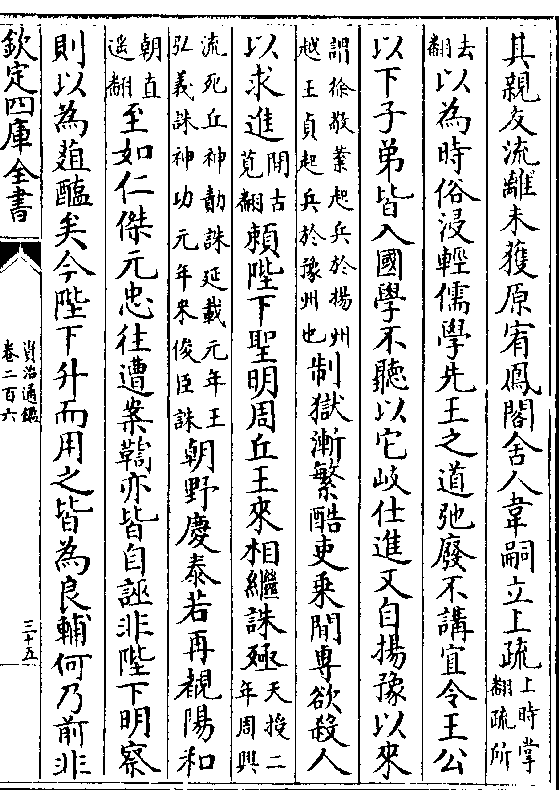 其親友流離未獲原宥鳳閣舍人韋嗣立上疏上時掌翻疏所
去翻以為時俗浸輕儒學先王之道弛廢不講宜令王公
以下子弟皆入國學不聽以它岐仕進又自揚豫以來
謂徐敬業起兵於揚州越王貞起兵於豫州也制獄漸繁酷吏乘間專欲殺人
以求進間古莧翻賴陛下聖明周丘王來相繼誅殛天授二年周興
流死丘神勣誅延載元年王弘義誅神功元年來俊臣誅朝野慶泰若再覩陽和
朝直遥翻至如仁傑元忠往遭案鞫亦皆自誣非陛下明察
則以為葅醢矣今陛下升而用之皆為良輔何乃前非
欽定四庫全書
資治通鑑
卷二百六
三十五